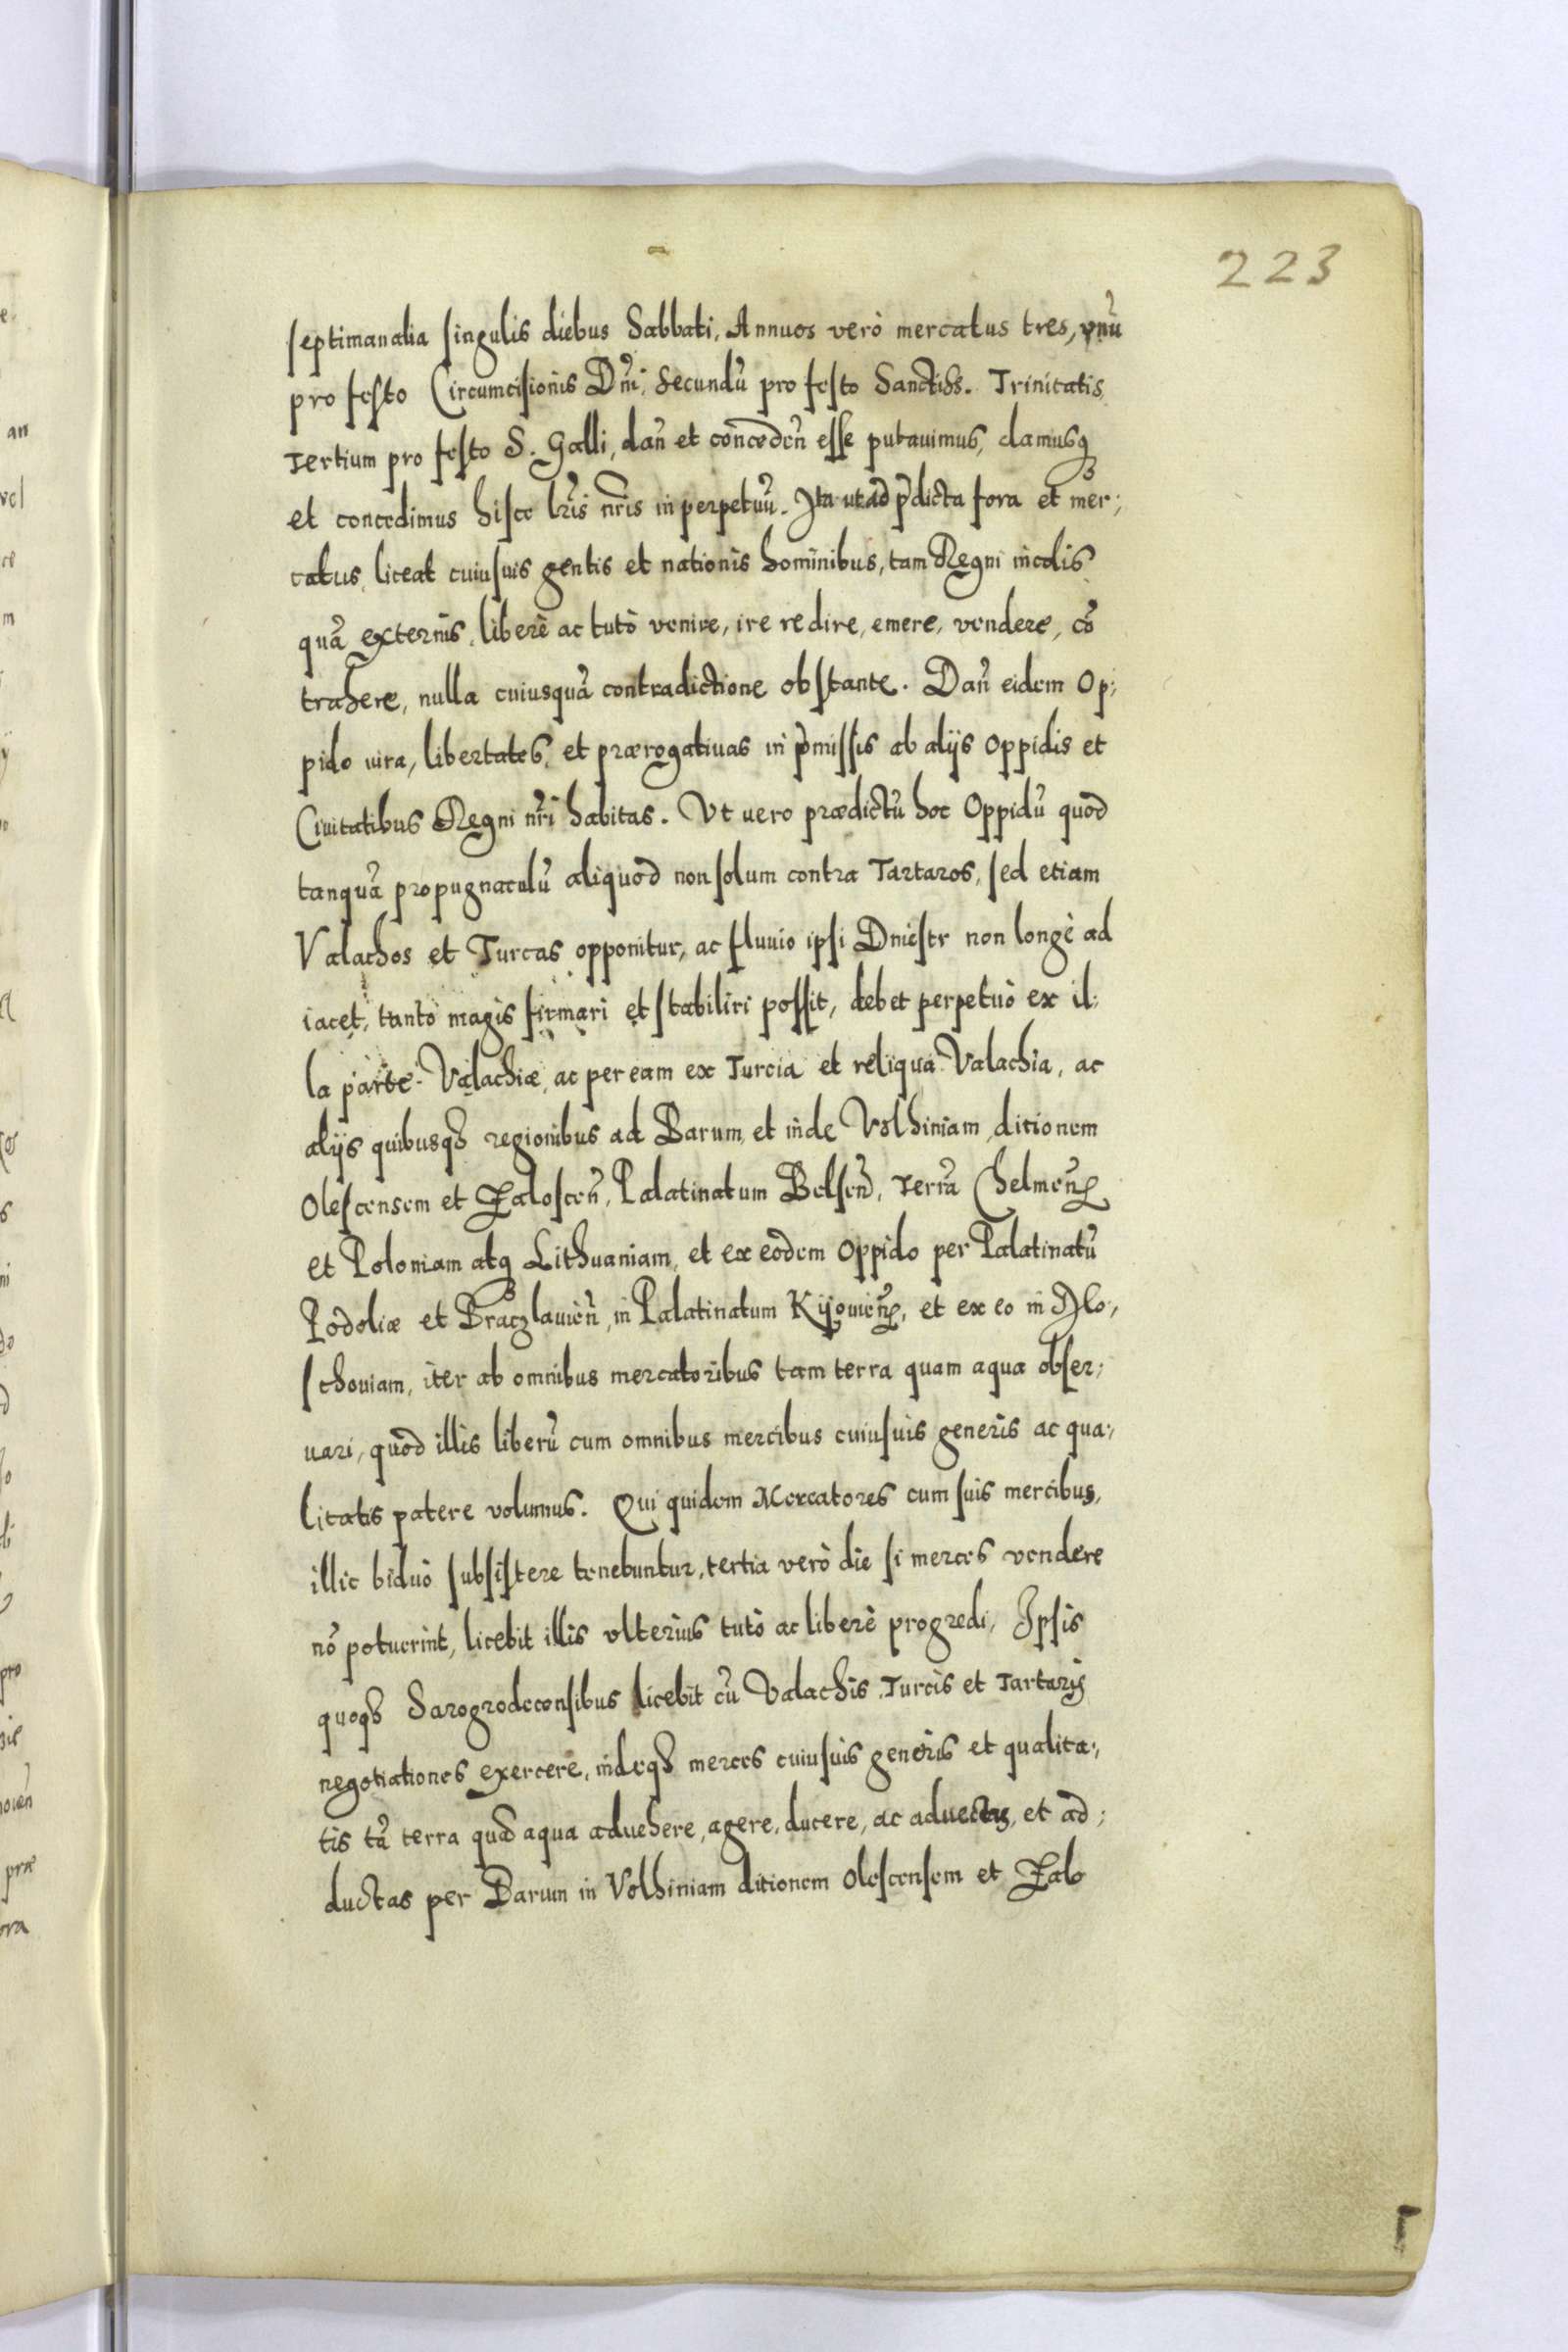 223
septimanalia singulis diebus Sabbati, Annuos verò mercatus tres, vnũ
pro festo Circumcisionis Dñi, Secundũ pro festo Sanctiss. Trinitatis
Tertium pro festo S. Galli, dañ et conceden̄ esse putauimus, damusqꝫ
et concedimus hisce lr̃is nr̃is in perpetuũ. Ita ut ad p̃dicta fora et mer;
catus, liceat cuiusuis gentis et nationis hominibus, tam Regni incolis
quã externis, liberè ac tutò venire, ire redire, emere, vendere, cõ
trahere, nulla cuiusquã contradictione obstante. Dañ eidem Op;
pido iura, libertates, et prærogatiuas in p̃missis ab alijs Oppidis et
Ciuitatibus Regni nr̃i habitas. Vt uero prædictũ hoc Oppidũ quod
tanquã propugnaculũ aliquod non solum contra Tartaros, sed etiam
Valachos et Turcas opponitur, ac fluuio ipsi Dniestr non longè ad
iacet, tantò magis firmari et stabiliri possit, debet perpetuò ex il;
la parte Valachiæ, ac per eam ex Turcia et reliqua Valachia, ac
alijs quibusqꝫ regionibus ad Barum, et inde Volhiniam, ditionem
Olescensem et Zaloscen̄, Palatinatum Belsen̄, Terrã Chelmen̄
et Poloniam atqꝫ Lithuaniam, et ex eodem Oppido per Palatinatũ
Podoliæ et Braczlauien̄, in Palatinatum Kijouien̄, et ex eo in Mo;
schouiam, iter ab omnibus mercatoribus tam terra quam aqua obser;
uari, quod illis liberũ cum omnibus mercibus cuiusuis generis ac qua;
litatis patere volumus. Qui quidem Mercatores cum suis mercibus,
illic biduò subsistere tenebuntur, tertia verò die si merces vendere
nõ potuerint, licebit illis vlterius tutò ac liberè progredi, Ipsis
quoqꝫ Sarogrodecensibus licebit cũ Valachis, Turcis et Tartaris
negotiationes exercere, indeqꝫ merces cuiusuis generis et qualita;
tis tã terra quã aqua aduehere, agere, ducere, ac aduectas, et ad;
ductas per Barum in Volhiniam ditionem Olescensem et Zalo